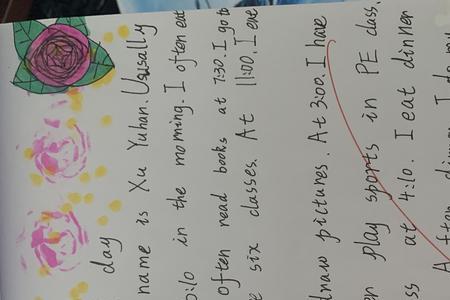 day
name is Xu Yuhan. Usually
:10 in the morning. I often eat
often read books at 7:30. I go to
e six classes. At 11:00. I eat
draw pictures. At 3:00. I have
en play sports in PE class.
ss at 4:10. I eat dinner
After dinner I do my